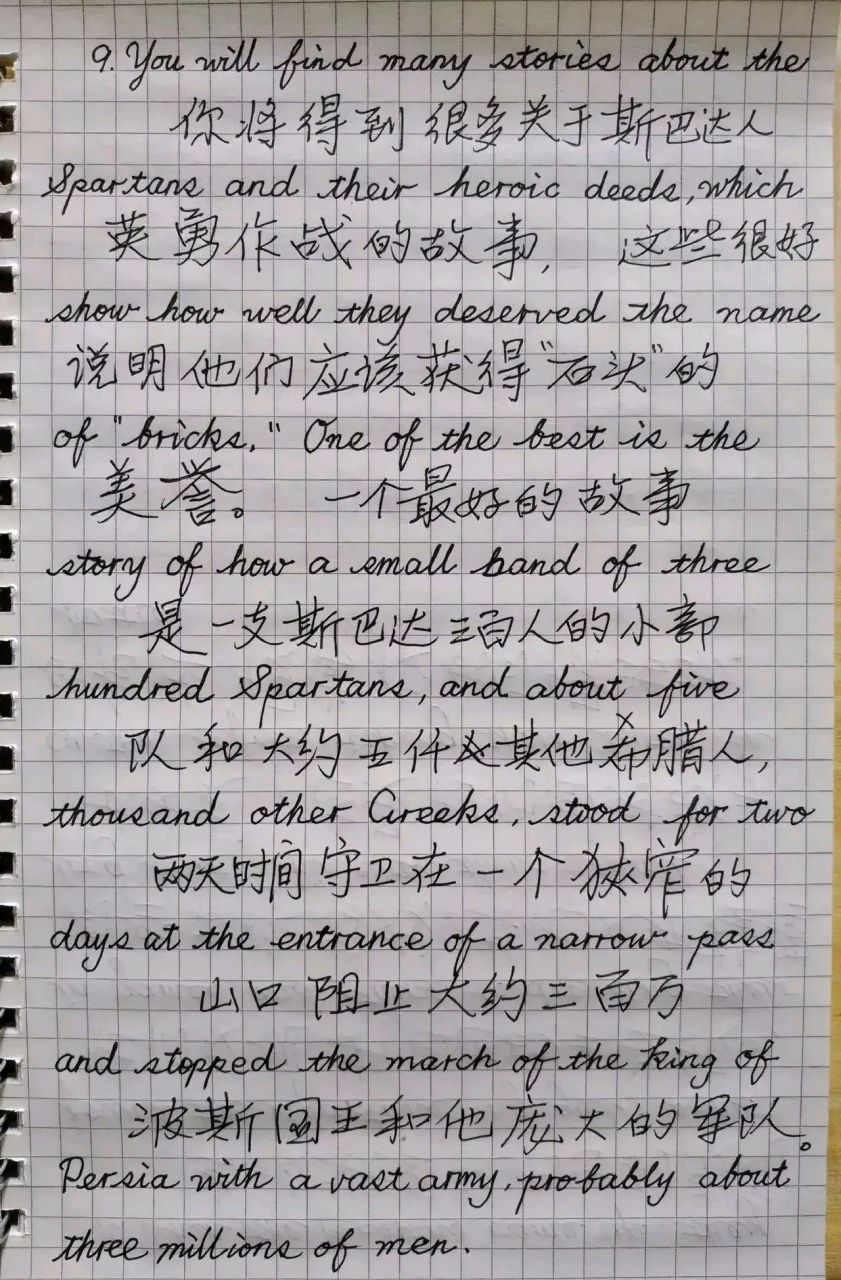 9. You will find many stories about the
你将得到很多关于斯巴达人
Spartans and their heroic deeds, which
英勇作战的故事, 这些很好
show how well they deserved the name
说明他们应该获得"石头"的
of "bricks." One of the best is the
美誉。 一个最好的故事
story of how a small band of three
是一支斯巴达三百人的小部
hundred Spartans, and about five
队和大约五仟其他希腊人,
thousand other Greeks, stood for two
两天时间守卫在一个狭窄的
days at the entrance of a narrow pass
山口阻止大约三百万
and stopped the march of the king of
波斯国王和他庞大的军队。
Persia with a vast army, probably about
three millions of men.